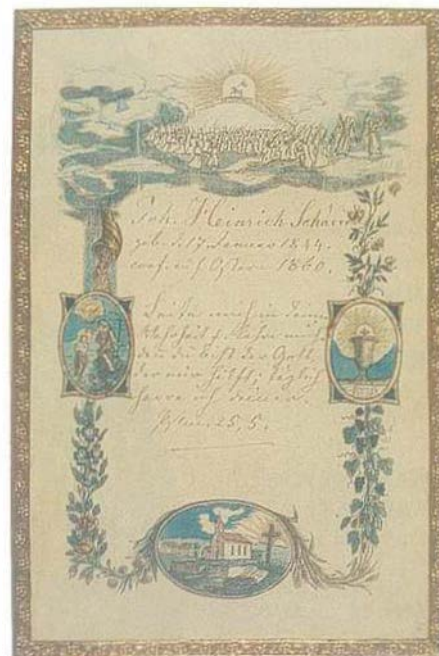 Joh. Heinrich Schär
geb. d. 17. Januar 1844.
conf. auf Ostern 1860.
Leite mich in deiner
Wahrheit & lehre mich
den du bist der Gott,
der mir hilft; täglich
harre ich deiner.
Psalm. 25, 5.